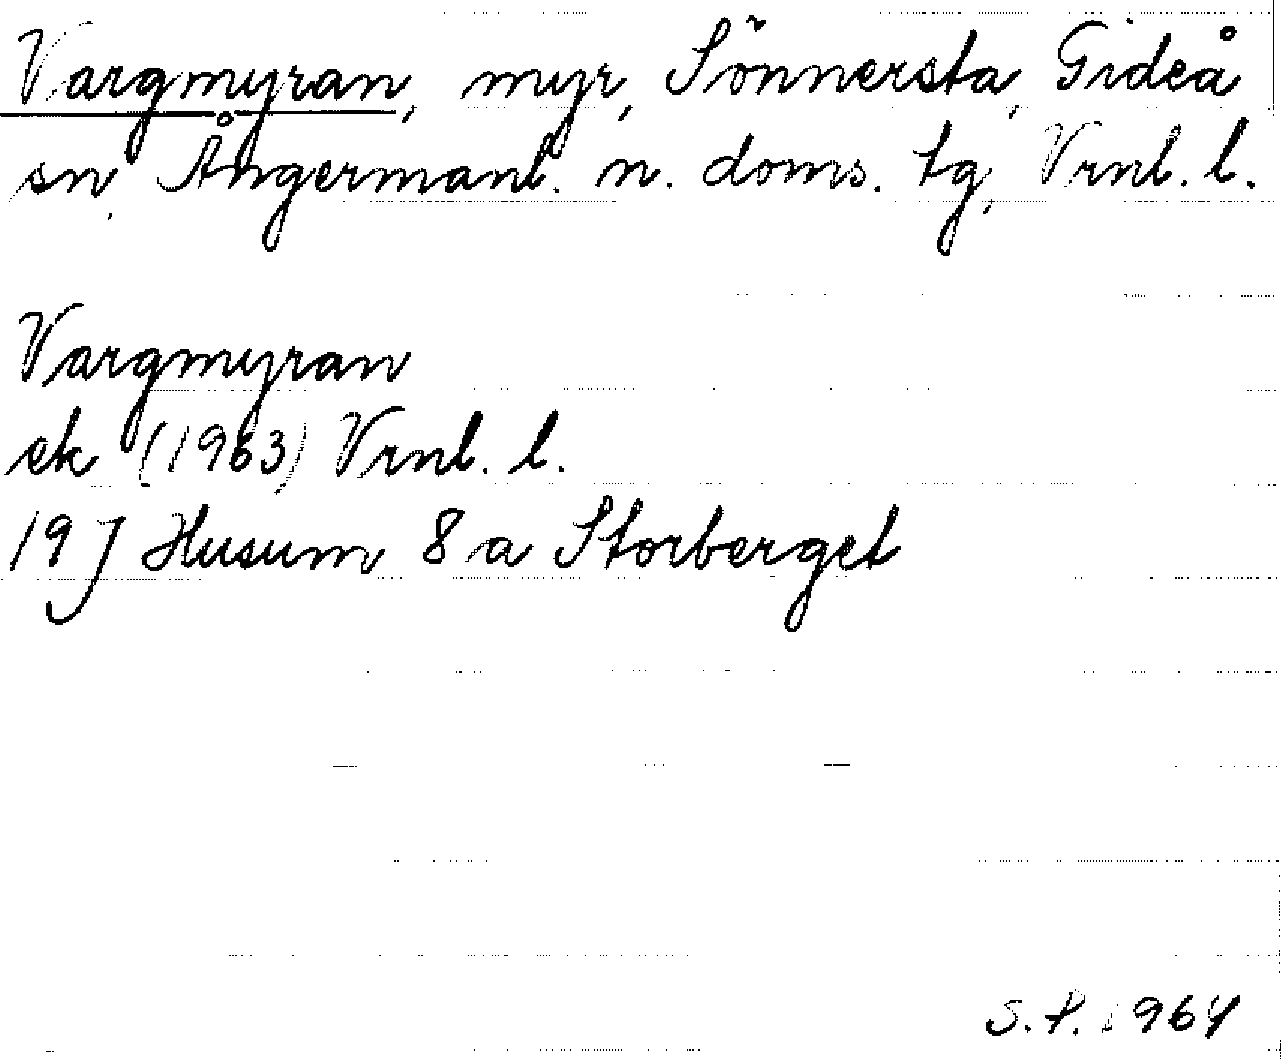 Vargmyran, myr, Sönnersta, Gideå
sn, Ångermanl. n. doms. tg, Vrnl. l.
Vargmyran
ek (1963) Vrnl. l.
19 J Husum 8 a Storberget
S. P. 1964